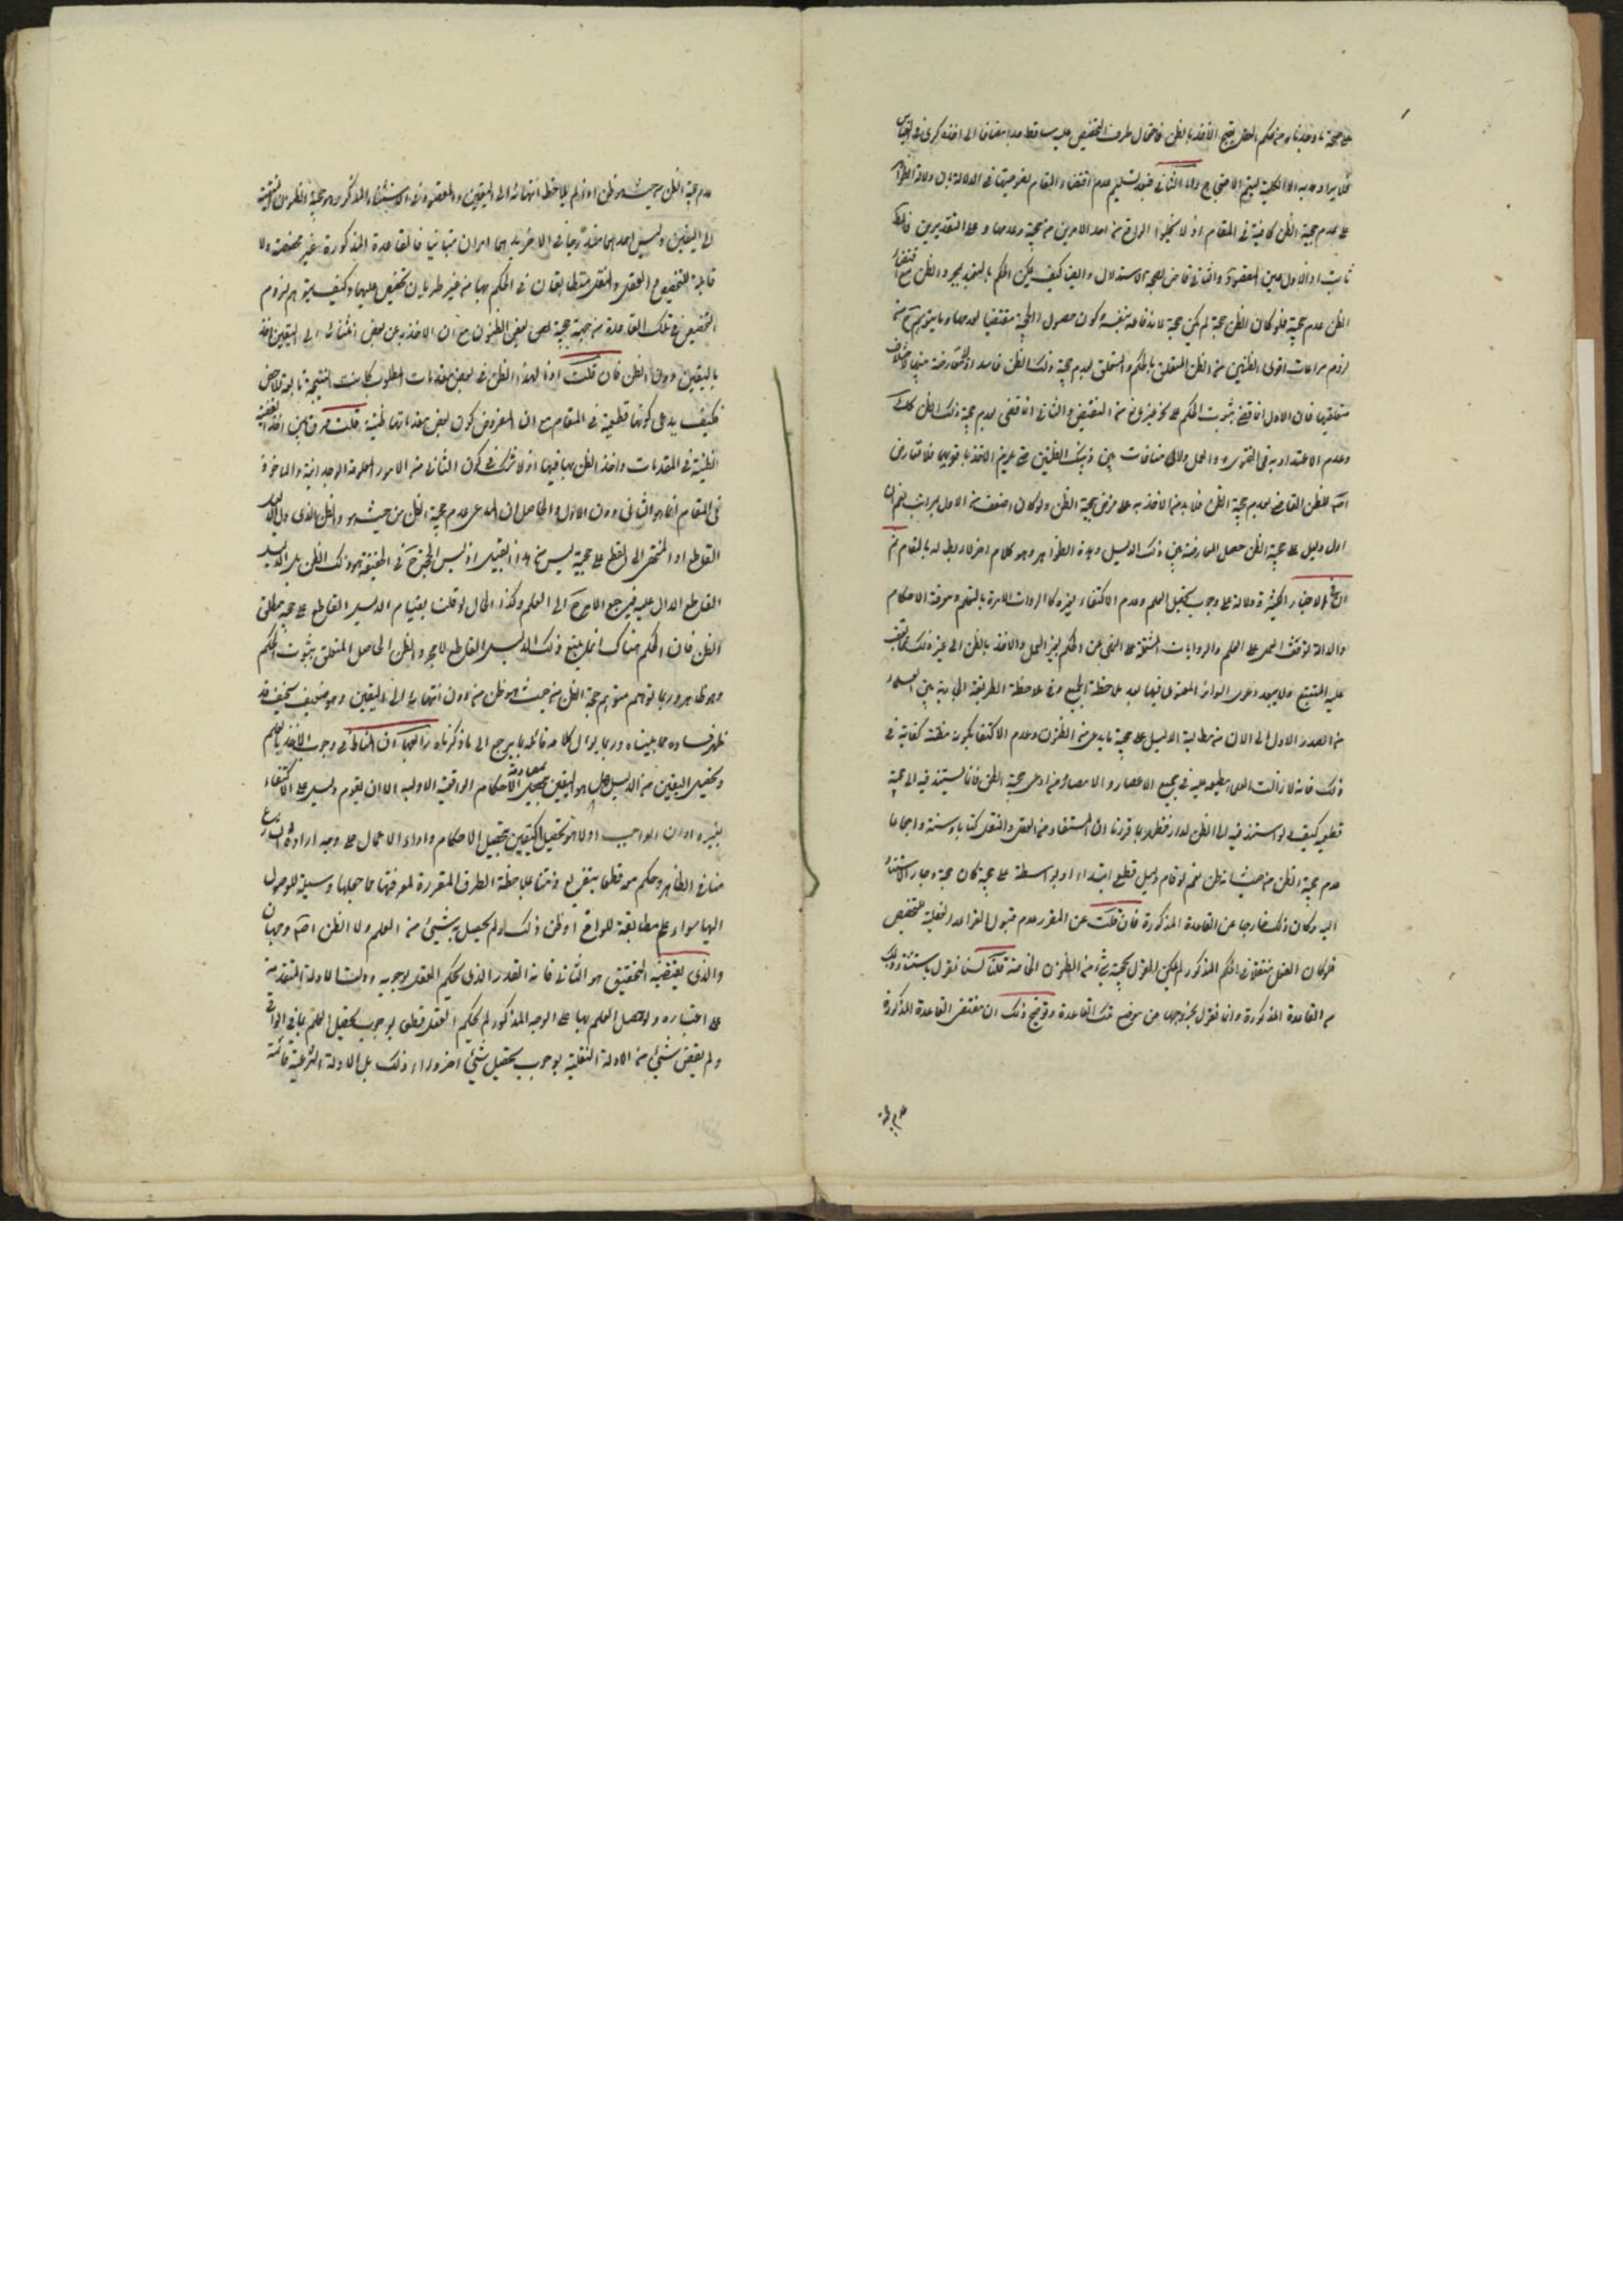 على صحة ما وجدناه من حكم العقل بقبح الأخذ بالظن فاحتمال طرف التخصيص عليه ساقط هذا مضافا الى اخذه كبرى في القياس
فلا يراد به الا الكلية ليتم الاحتجاج واما الثاني فبعد تسليم عدم اقتضاء المقام لقوتهما في الدلالة بان دلالة الظواهر
على عدم حجية الظن كافية في المقام اذ لا يخلوا الواقع من احد الامرين من حجية وعدمها وعلى التقديرين فالمط
ثابت اذ الاول عين المقصود والثاني قاض بصحة الاستدلال وايضا كيف يمكن الحكم بالتعبد بمجرد الظن مع اقتضاء
الظن عدم حجيته فلو كان الظن حجة لم يكن حجة لاندفاعه بنفسه وكون حصول الحجية مقتضيا لعدمها وما يتوهم ح من
لزوم مراعات اقوى الظنين من الظن المتعلق بالحكم والمتعلق بعدم حجية ذلك الظن فاسد اذ لا معارضة بينهما لاختلاف
متعلقيهما فان الاول انما يقضي بثبوت الحكم على نحو غير مانع من النقيض والثاني انما يقضي بعدم حجية ذلك الظن كذلك
وعدم الاعتداد به في الفتوى والعمل ولا منافات بين ذينك الظنين حتى يلزم الاخذ باقويهما فلا تعارض
اصلا للظن القاضي بعدم حجية الظن فلا بد من الاخذ به على فرض حجية الظن ولو كان اضعف من الاول بمراتب نعم ان
اول دليل على حجية الظن حصل المعارضة بين ذلك الدليل وهذه الظواهر وهو كلام اخر لا ربط له بالمقام ثم
الاخبار الكثيرة الدالة على وجوب تحصيل العلم وعدم الاكتفاء بغيره كالروايات الامرة بالتعلم ومعرفة الاحكام
والدالة على توقف العمل على العلم والروايات المشتملة على النهي عن الحكم بغير العلم والاخذ بالظن الى غير ذلك مما يقف
عليه المتتبع ولا يبعد دعوى التواتر المعنوي فيها بعد ملاحظة الجميع وفي ملاحظة الطريقة الجارية بين العلماء
من الصدر الاول الى الان من مطالبة الدليل على حجية ما يدعى من الظنون وعدم الاكتفاء بكونه مظنة كفاية في
ذلك فانه لا زالت العلماء مطبقة عليه في جميع الاعصار والامصار من ادعى حجية الظن فانما يستند فيه الى حجة
قطعية كيف ولو استند فيه الى الظن لدار فظهر بما قررنا ان المستفاد من العقل والنقل كتابا وسنة واجماعا
عدم حجية الظن من حيث انه ظن نعم لو قام دليل قطعي ابتداء او بواسطة على حجيته كان حجة وجاز الاستناد
اليه وكان ذلك خارجا عن القاعدة المذكورة فان قلت من المقرر عدم قبول القواعد العقلية للتخصيص
فلو كان العقل مستقلا في الحكم المذكور لم يمكن القول بحجية شيء من الظنون الخاصة قلنا لسنا نقول باستثناء ذلك
من القاعدة المذكورة وانما نقول بخروجها عن موضوع تلك القاعدة وتوضيح ذلك ان مقتضى القاعدة المذكورة
عدم حجية
عدم حجية الظن من حيث هو ظن اذا لم يلاحظ انتهائه الى اليقين والمقصود من الاستثناء المذكور هو حجية الظنون المنتهية
الى اليقين وليس احدهما مندرجا في الاخر بل هما امران متباينان فالقاعدة المذكورة غير مخصصة ولا
قابلة للتخصيص والعقل والنقل متطابقان في الحكم بها من غير طريان تخصيص عليهما وكيف يتوهم لزوم
التخصيص في تلك القاعدة من جهة حجية بعض الظنون مع ان الاخذ به عن بعض انتهائه الى اليقين اخذ
باليقين دون الظن فان قلت اذا لوحظ الظن في بعض مقدمات المطلوب كانت النتيجة تابعة للاخس
فكيف يدعى كونها قطعية في المقام مع ان المفروض كون بعض مقدماتها ظنية قلت فرق بين اخذ القضية
الظنية في المقدمات واخذ الظن بها فيها اذ لا شك في كون الثاني من الامور المعلومة الوجدانية والماخوذ
في المقام انما هو الثاني دون الاول والحاصل ان المدعى عدم حجية الظن من حيث هو والظن الذي دل الدليل
القاطع او المنتهي الى القطع على حجيته ليس من هذا القبيل اذ ليس الحجة ح في الحقيقة هو ذلك الظن بل الدليل
القاطع الدال عليه فيرجع الامر ح الى العلم وكذا الحال لو قلنا بقيام الدليل القاطع على حجية مطلق
الظن فان الحكم هناك انما يتبع ذلك الدليل القاطع لا مجرد الظن الحاصل المتعلق بثبوت الحكم
وهو ظاهر وربما توهم متوهم حجية الظن من حيث هو ظن من دون انتهائه الى اليقين وهو ضعيف سخيف قد
ظهر فساده مما بيناه وربما يؤل كلام قائله بما يرجع الى ما ذكرناه رابعها ان المناط في وجوب الاخذ بالعلم
وتحصيل اليقين من الدليل هل هو اليقين بمصادفة الاحكام الواقعية الاولية الا ان يقوم دليل على الاكتفاء
بغيره او ان الواجب اولا هو تحصيل اليقين بتحصيل الاحكام واداء الاعمال على وجه اراده الشارع
منا في الظاهر وحكم معه قطعا بتفريغ ذمتنا بملاحظة الطرق المقررة لمعرفتها مما جعلها وسيلة للوصول
اليها سواء علم مطابقته للواقع او ظن ذلك او لم يحصل به شيء من العلم ولا الظن اصلا وجهان
والذي يقتضيه التحقيق هو الثاني فانه القدر الذي يحكم العقل بوجوبه ودلت الادلة المتقدمة
على اعتباره ولو حصل العلم بها على الوجه المذكور لم يحكم العقل قطعا بوجوب تحصيل العلم بما في الواقع
ولم يقض شيء من الادلة النقلية بوجوب تحصيل شيء اخر وراء ذلك بل الادلة الشرعية قائمة